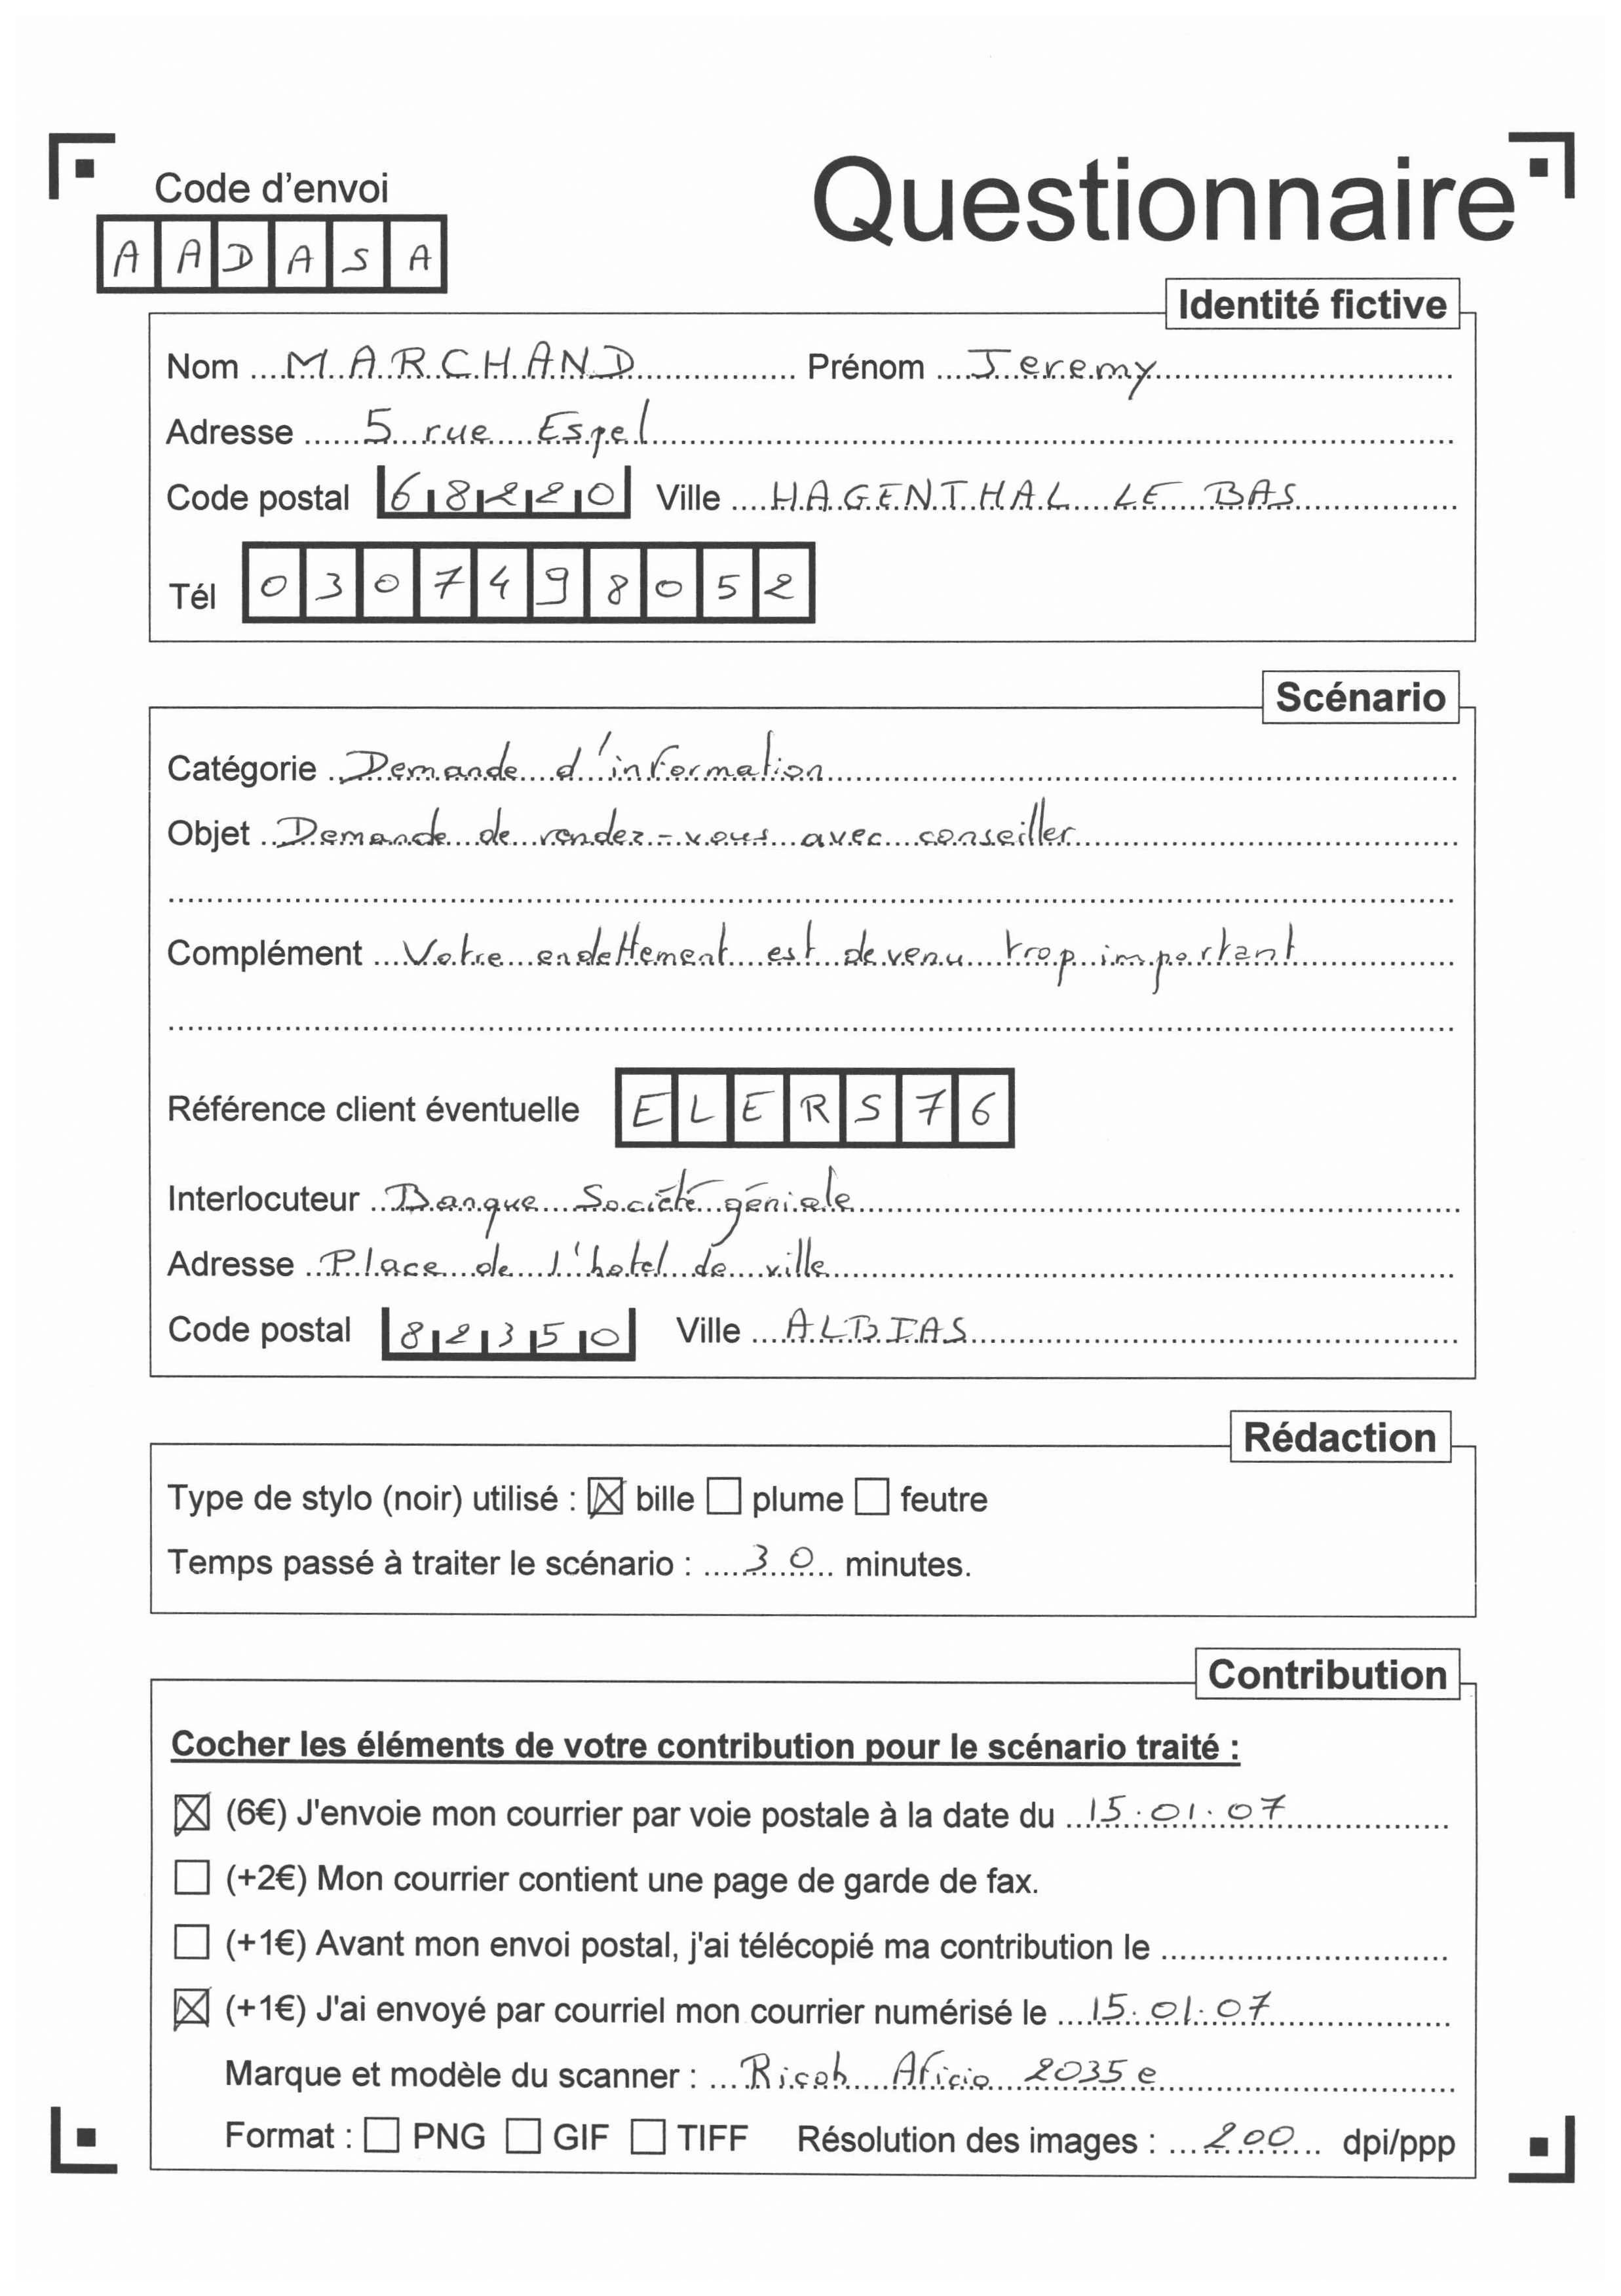 Code d'envoi
Questionnaire
A A D A S A
Identité fictive
Nom MARCHAND Prénom Jeremy
Adresse 5 rue Espel
Code postal 68220 Ville HAGENTHAL LE BAS
Tél 0307498052
Scénario
Catégorie Demande d'information
Objet Demande de rendez-vous avec conseiller
Complément Votre endettement est devenu trop important
Référence client éventuelle ELERS76
Interlocuteur Banque Société géniale
Adresse Place de l'hotel de ville
Code postal 82350 Ville ALBIAS
Rédaction
Type de stylo (noir) utilisé : ☒ bille ☐ plume ☐ feutre
Temps passé à traiter le scénario : 30 minutes.
Contribution
Cocher les éléments de votre contribution pour le scénario traité :
☒ (6€) J'envoie mon courrier par voie postale à la date du 15.01.07
☐ (+2€) Mon courrier contient une page de garde de fax.
☐ (+1€) Avant mon envoi postal, j'ai télécopié ma contribution le
☒ (+1€) J'ai envoyé par courriel mon courrier numérisé le 15.01.07
Marque et modèle du scanner : Ricoh Aficio 2035e
Format : ☐ PNG ☐ GIF ☐ TIFF Résolution des images : 200 dpi/ppp